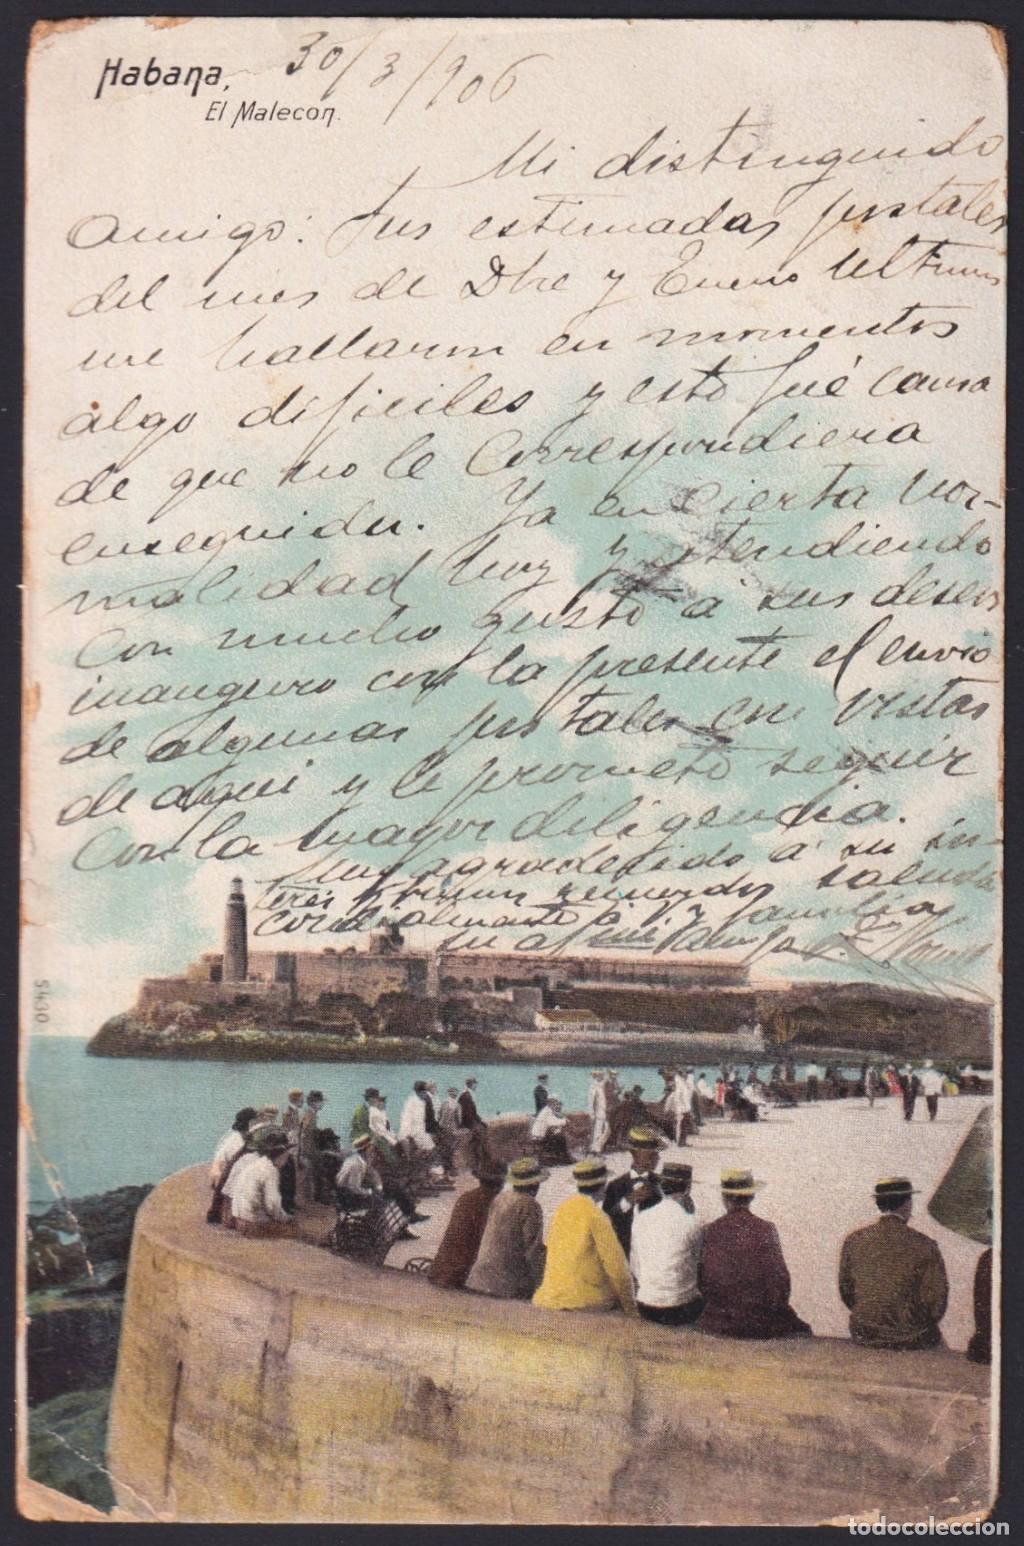 Habana, 30/3/906
El Malecon.
Mi distinguido
Amigo: Sus estimadas postales
del mes de Dbre y Enero ultimos
me hallaron en momentos
algo dificiles y esto fué causa
de que no le correspondiera
enseguida. Ya en cierta nor-
malidad hoy y atendiendo
con mucho gusto á sus deseos
inauguro con la presente el envio
de algunas postales con vistas
de aqui y le prometo seguir
con la mayor diligencia.
Muy agradecido á su in-
terés saluda
cordialmente á V. y familia
su
5430
todocoleccion